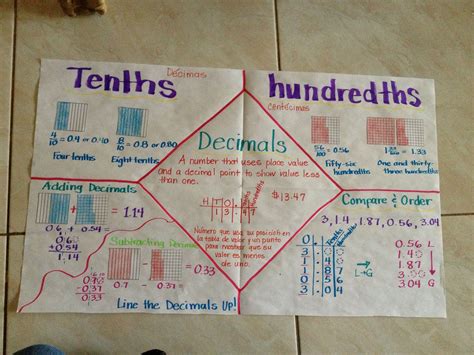 Tenths
Décimas
hundredths
Centécimas
4/10 = 0.4 or 0.40
Four tenths
8/10 = 0.8 or 0.80
Eight tenths
56/100 = 0.56
Fifty-six
hundredths
= 1.33
One and thirty-
three hundredths
Decimals
A number that uses place value
and a decimal point to show value less
than one.
$13.47
H T O . Tenths Hundredths
Número que usa su posición en
la tabla de valor y un punto
para mostrar que su valor
es menos de
uno.
Adding Decimals
= 1.14
0.6 + 0.54
0.6
+0.54
1.14
Subtracting Decimals
= 0.33
0.70
-0.37
0.33
Line the Decimals UP!
Compare & Order
3, 1.4, 1.87, 0.56, 3.04
Tenths
Hundredths
L→G
0.56 L
1.4
1.87
3
3.04 G